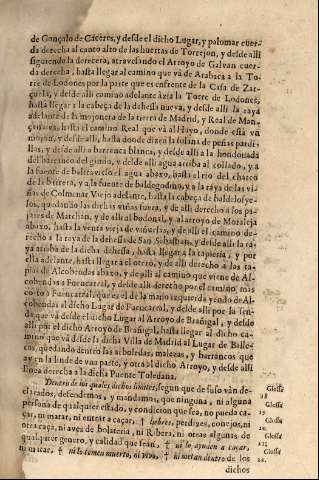 de Gonçalo de Cáceres, y desde el dicho Lugar, y palomar cuer-
da derecha al canto alto de las huertas de Torrejon, y desde alli
siguiendo la derecera, atravesando el Arroyo de Galvan cuer-
da derecha, hasta llegar al camino que và de Arabaca a la To-
rre de Lodones por la parte que es enfrente de la Casa de Zar-
çuela, y desde alli camino adelante àzia la Torre de Lodones,
hasta llegar a la cabeça de la dehessa nueva, y desde alli la raya
adelante de la mojonera de la tierra de Madrid, y Real de Man-
çanares, hasta el camino Real que và al Hoyo, donde està vn
mojon, y desde alli, hasta donde dizen la solana de peñas pardi-
llas, y desde alli a barranca blanca, y desde alli a la hondonada
del barranco del gimio, y delde alli agua arriba al collado, y a
la fuente de el agua abaxo, hasta el rio del charco
de la herrera, y a la fuente de baldegodino, y a la raya de las vi-
ñas de Colmenar Viejo adelante, hasta la cabeça de baldelosye-
sos, quedando las dichas viñas fuera, y de alli derecho a los pa-
jares de Marchan, y de alli al bodonal, y al arroyo de Moraleja
abaxo, hasta la venta vieja de viñuelas, y de alli el camino de-
recho a la raya de la dehessa de San Sebastian, y desde alli la ra-
ya arriba de la dicha dehessa, hasta llegar a la tapieria, y por
ella adelante, hasta llegar a el otero, y de alli derecho a las ta-
pias de Alcobendas abaxo, y de alli al camino que viene de Al-
cobendas a Fuencarral, y desde alli derecho por el camino, mas
cerca a Fuencarral, que es el de la mano izquierda yendo de Al-
cobendas al dicho Lugar de Fuencarral, y desde alli por la Sen-
da que và desde el dicho Lugar al Arroyo de Brañigal, y desde
alli por el dicho Arroyo de Brañigal, hasta llegar al dicho ca-
mino que và desde la dicha Villa de Madrid al Lugar deBalle-
cas, quedando dentro las arboledas, malezas, y barrancos que
ay en la linde de vna parte, y otra al dicho Arroyo, y desde alli
linea derecha a la dicha Puente Toledana.
Dentro de los quales dichos limites, segun que de suso van de-
clarados, defendemos, y mandamos, que ninguna, ni alguna
persona de qualquier estado, y condicion que sea, no pueda ca-
çar, ni matar, ni entrar a caçar, † liebres, perdizes, conejos, ni
otra caça, ni aves de bolateria, ni Ribera, ni otras algunas de
qualquier genero, y calidad que sean, † ni lo ayuden a caçar,
ni matar, † ni lo tomen muerto, ni vivo, † ni metan dentro de los
dichos
Glossa
Glossa
Glossa
Glossa